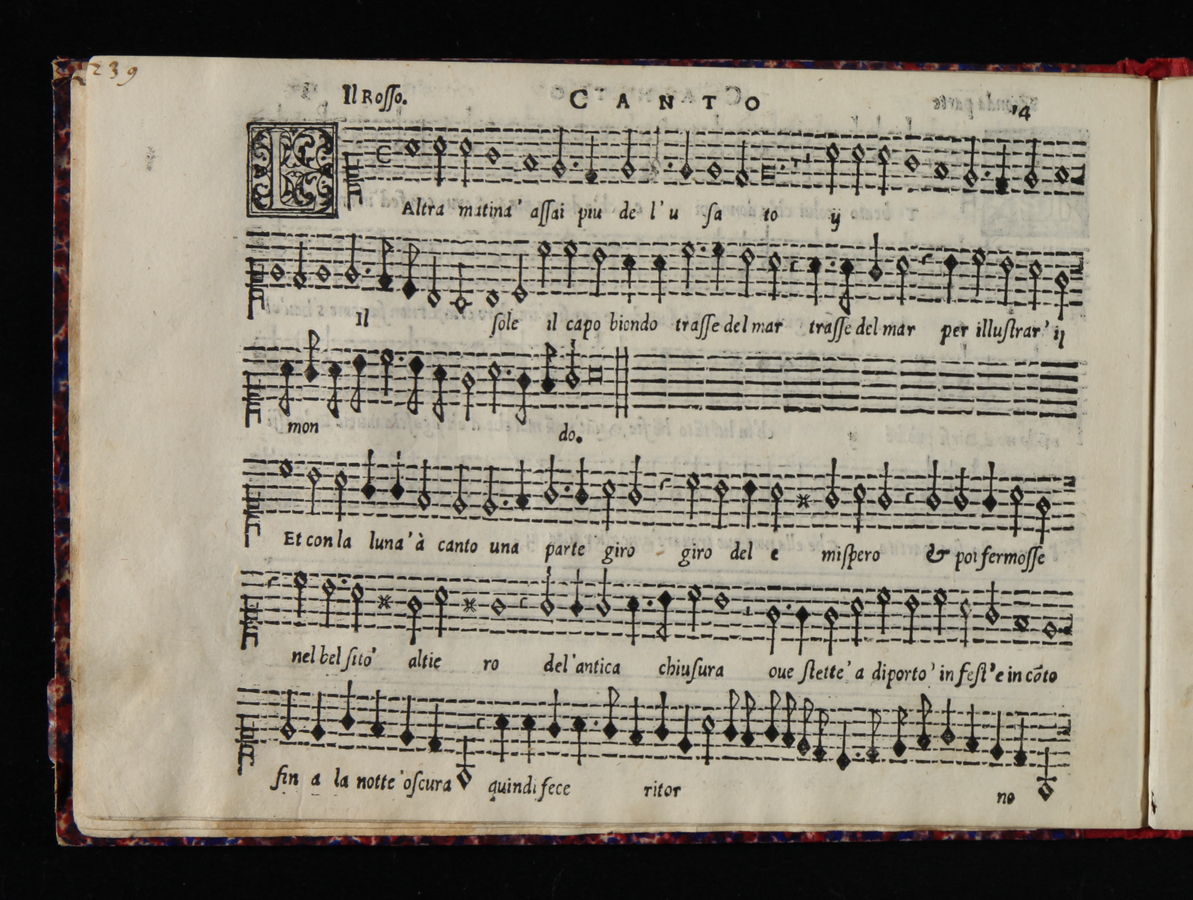 239
Il Rosso. CANTO 14
L Altra matina' assai piu de l'u sa to ij
Il sole il capo biondo trasse del mar trasse del mar per illustrar' il
mon do.
Et con la luna' à canto una parte giro giro del e mispero & poi fermosse
nel bel sito' altie ro del'antica chiusura oue stette' a diporto' in fest'e in cõto
fin a la notte 'oscura quindi fece ritor no